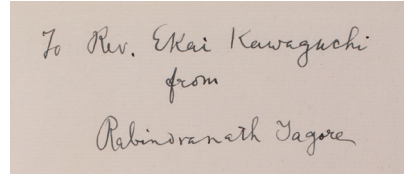 To Rev. Ekai Kawaguchi
from
Rabindranath Tagore